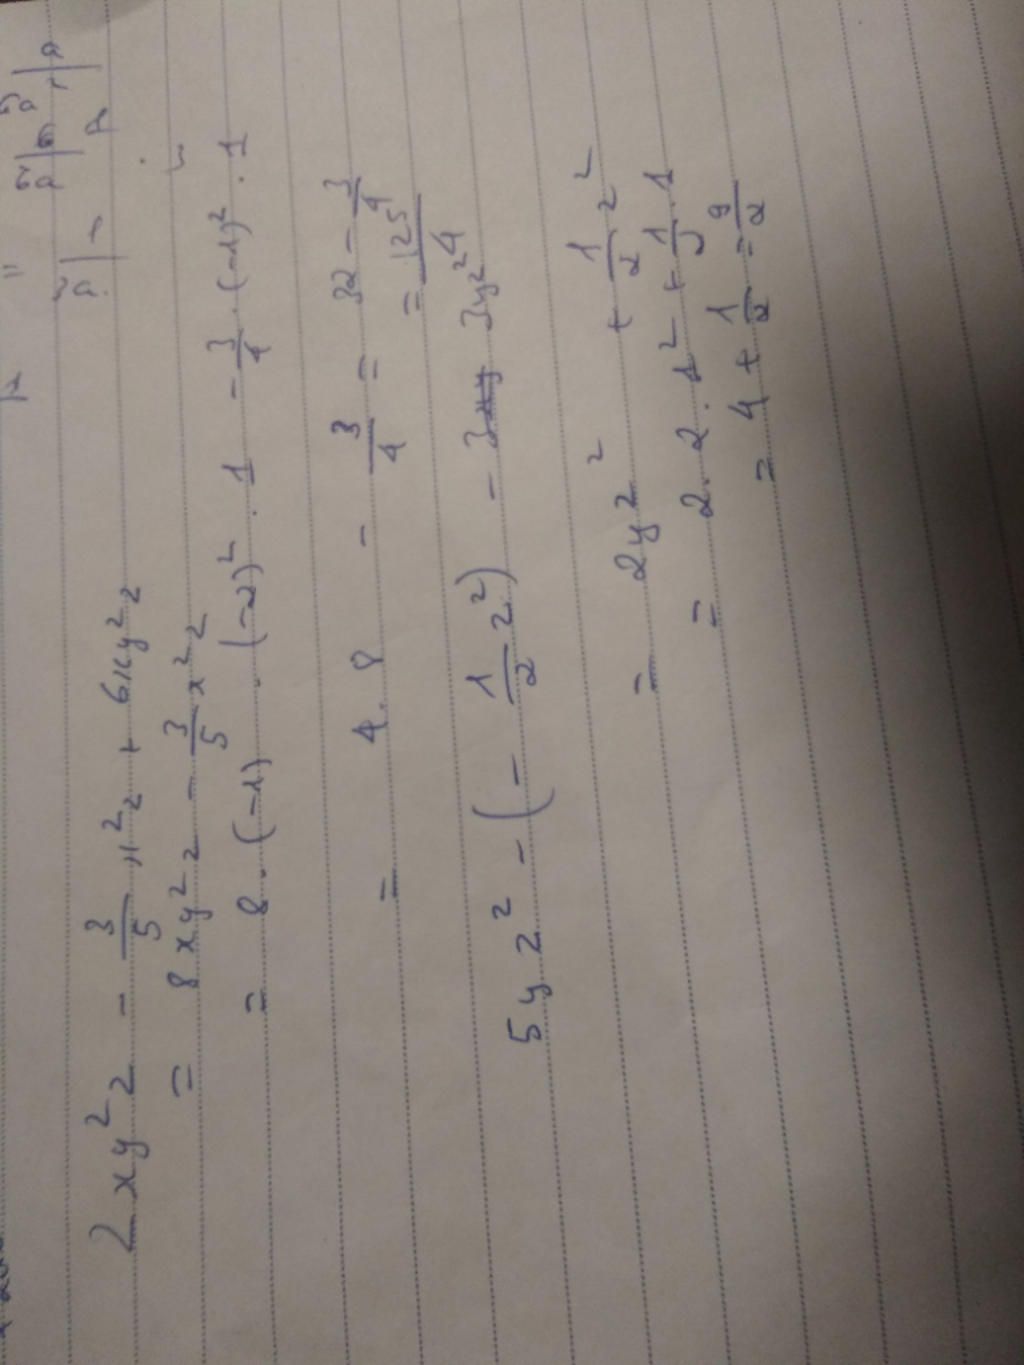 2xy²z - 3/5 x²z + 6xy²z
= 8xy²z - 3/5 x²z
= 8 . (-1) . (-2)² . 1 - 3/4 . (-1)² . 1
= 4 . 8 - 3/4 = 32 - 3/4
= 125/4
5yz² - (- 1/2 z²) - 3yz²
= 2yz² + 1/2 z²
= 2 . 2 . 1² + 1/2 . 1
= 4 + 1/2 = 9/2